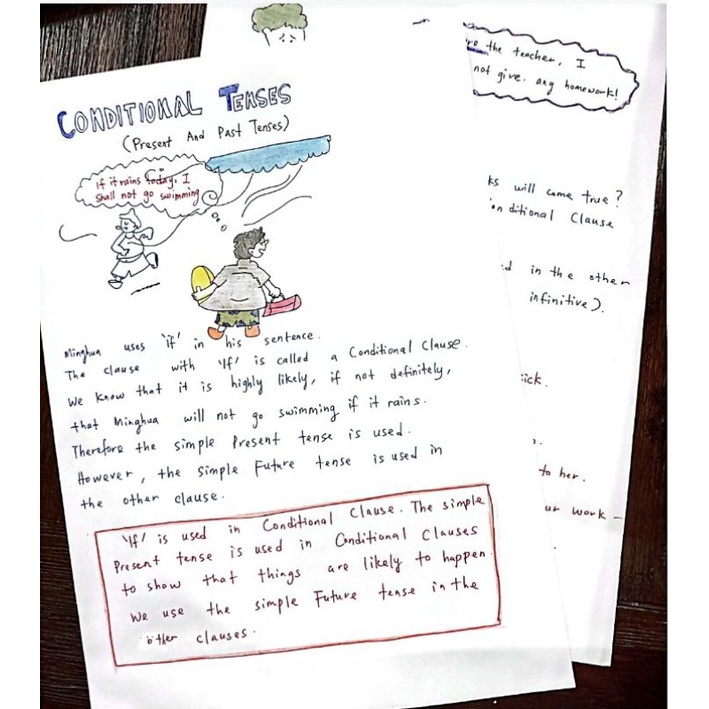 CONDITIONAL TENSES
(Present And Past Tenses)
If it rains today, I
shall not go swimming
Minghua uses 'if' in his sentence.
The clause with 'If' is called a Conditional Clause.
We know that it is highly likely, if not definitely,
that Minghua will not go swimming if it rains.
Therefore the simple Present tense is used.
However, the simple Future tense is used in
the other clause.
'If' is used in Conditional Clause. The simple
Present tense is used in Conditional Clauses
to show that things are likely to happen.
We use the simple Future tense in the
other clauses.
the teacher, I
not give. any homework!
will come true?
onditional Clause
in the other
infinitive).
to her.
work -